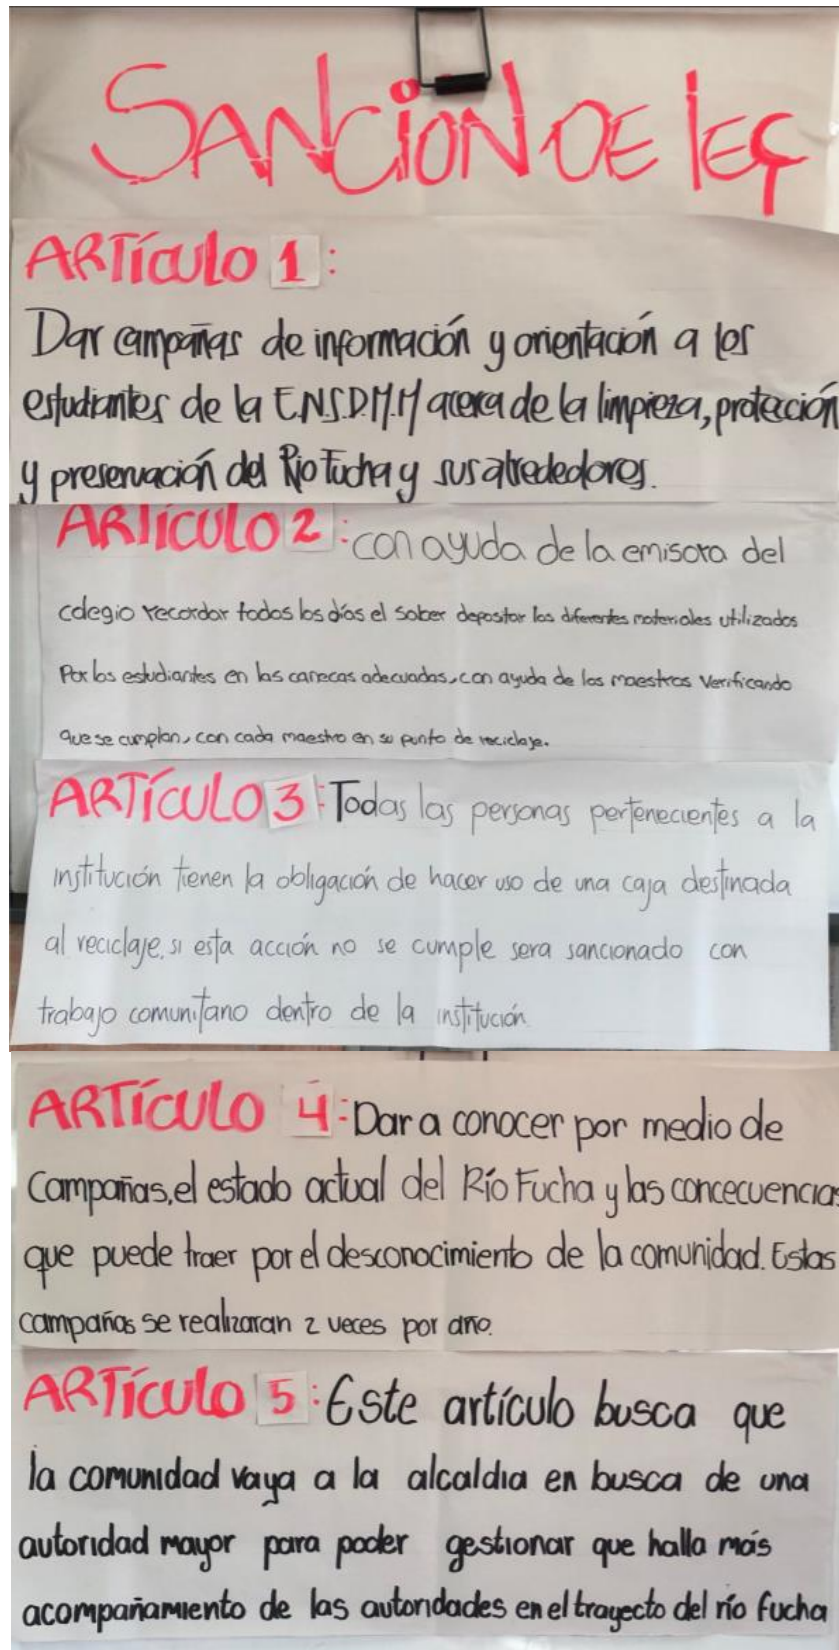 SANCION DE ley
ARTículo 1:
Dar campañas de información y orientación a los
estudiantes de la E.N.S.D.M.M acerca de la limpieza, protección
y preservación del Rio Fucha y sus alrededores.
ARTÍCULO 2: con ayuda de la emisora del
colegio recordar todos los días el saber depositar los diferentes materiales utilizados
Por los estudiantes en las canecas adecuadas, con ayuda de los maestros Verificando
que se cumplan, con cada maestro en su punto de reciclaje.
ARTÍCULO 3: Todas las personas pertenecientes a la
institución tienen la obligación de hacer uso de una caja destinada
al reciclaje, si esta acción no se cumple sera sancionado con
trabajo comunitario dentro de la institución.
ARTÍCULO 4: Dar a conocer por medio de
Campañas, el estado actual del Río Fucha y las concecuencias
que puede traer por el desconocimiento de la comunidad. Estas
campañas se realizaran 2 veces por año.
ARTículo 5: Este artículo busca que
la comunidad vaya a la alcaldia en busca de una
autoridad mayor para poder gestionar que halla más
acompañamiento de las autoridades en el trayecto del río fucha